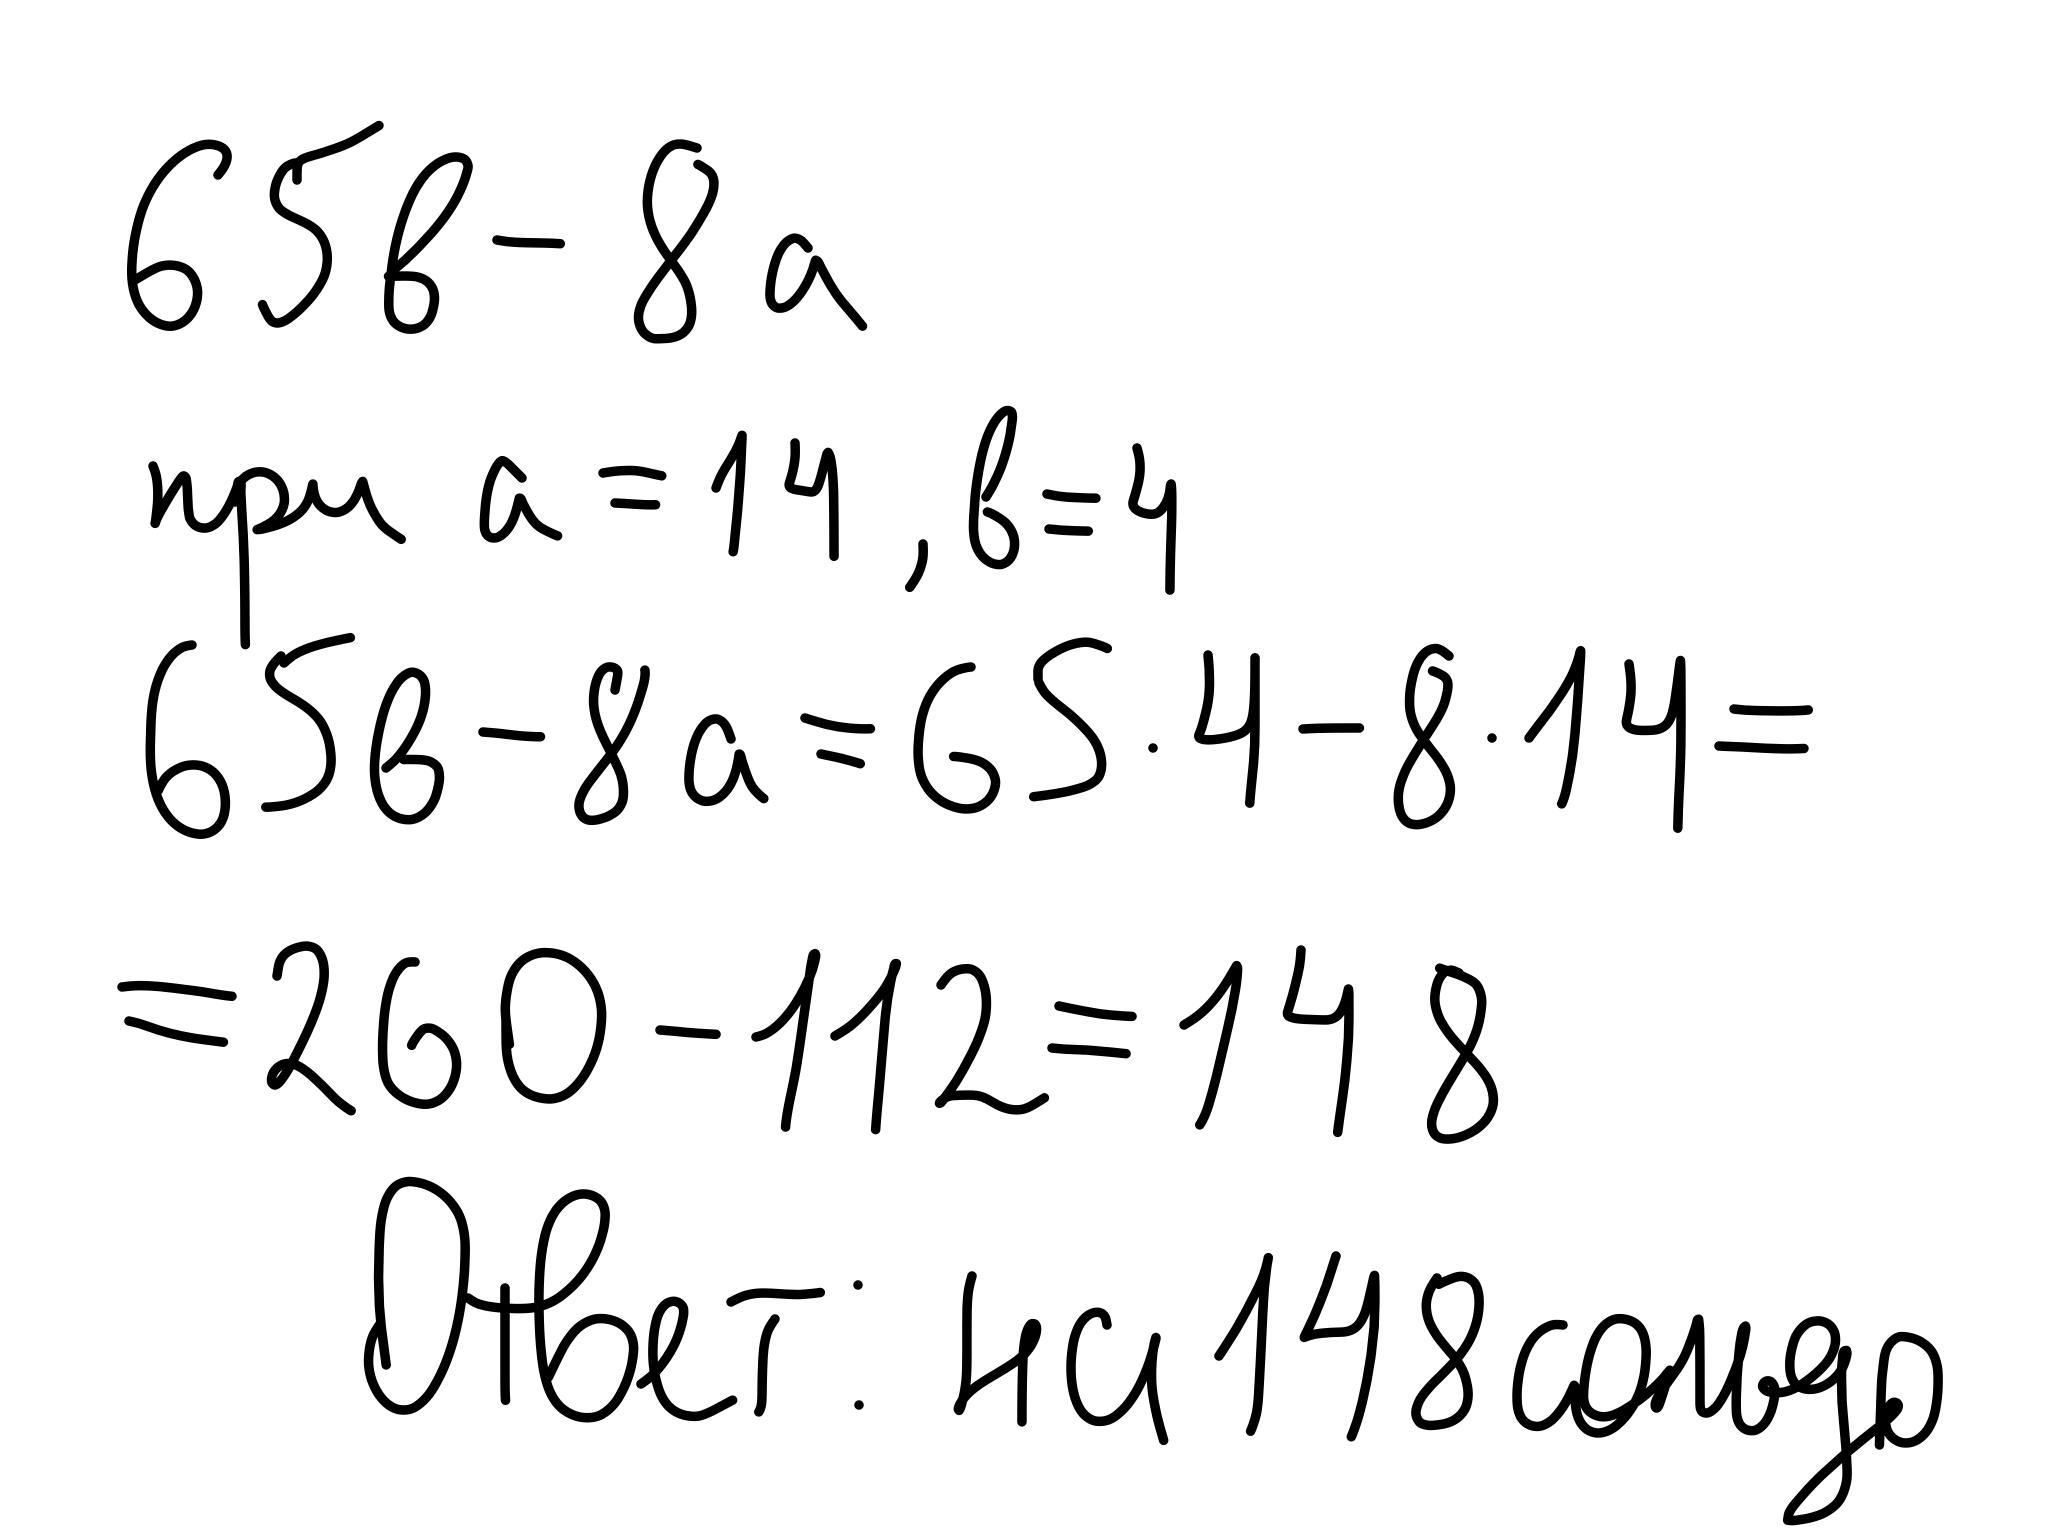 65в - 8а
при а = 14, в = 4
65в - 8а = 65 · 4 - 8 · 14 =
= 260 - 112 = 148
Ответ: на 148